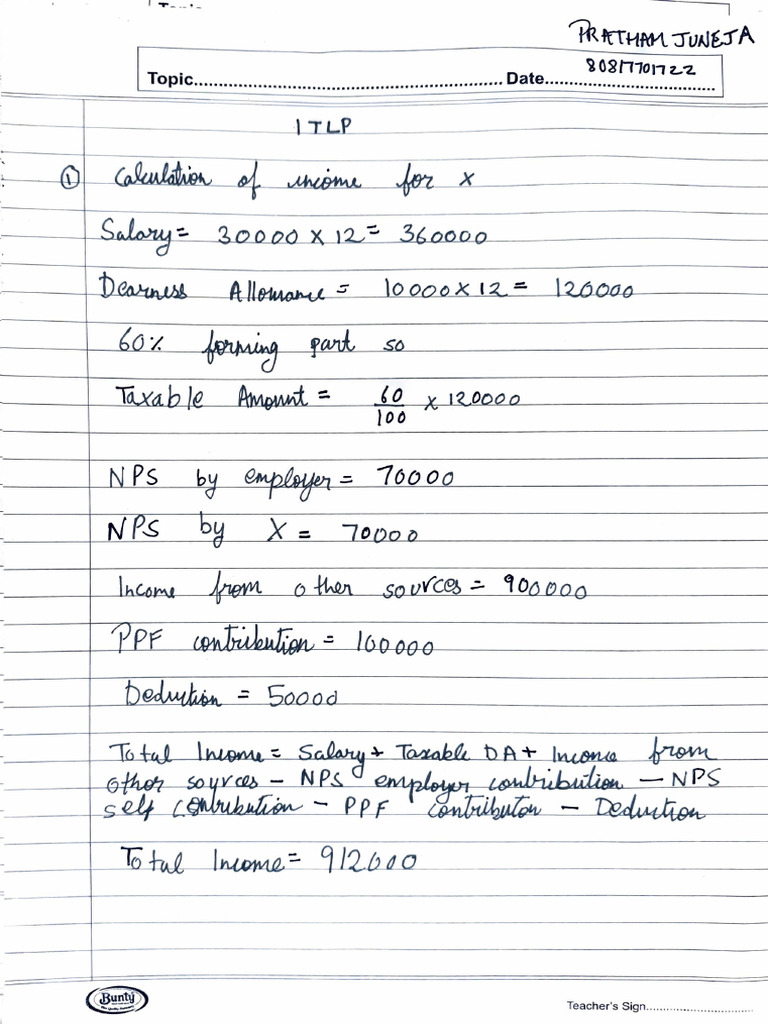 PRATHAM JUNEJA
Topic.......................................................... Date................................
80817701722
ITLP
① Calculation of income for x
Salary = 30000 x 12 = 360000
Dearness Allowance = 10000 x 12 = 120000
60% forming part so
Taxable Amount = 60/100 x 120000
NPS by employer = 70000
NPS by X = 70000
Income from other sources = 900000
PPF contribution = 100000
Deduction = 50000
Total Income = Salary + Taxable DA + Income from
other sources – NPS employer contribution – NPS
self contribution – PPF contributon – Deduction
Total Income = 912000
Bunty
Teacher's Sign........................